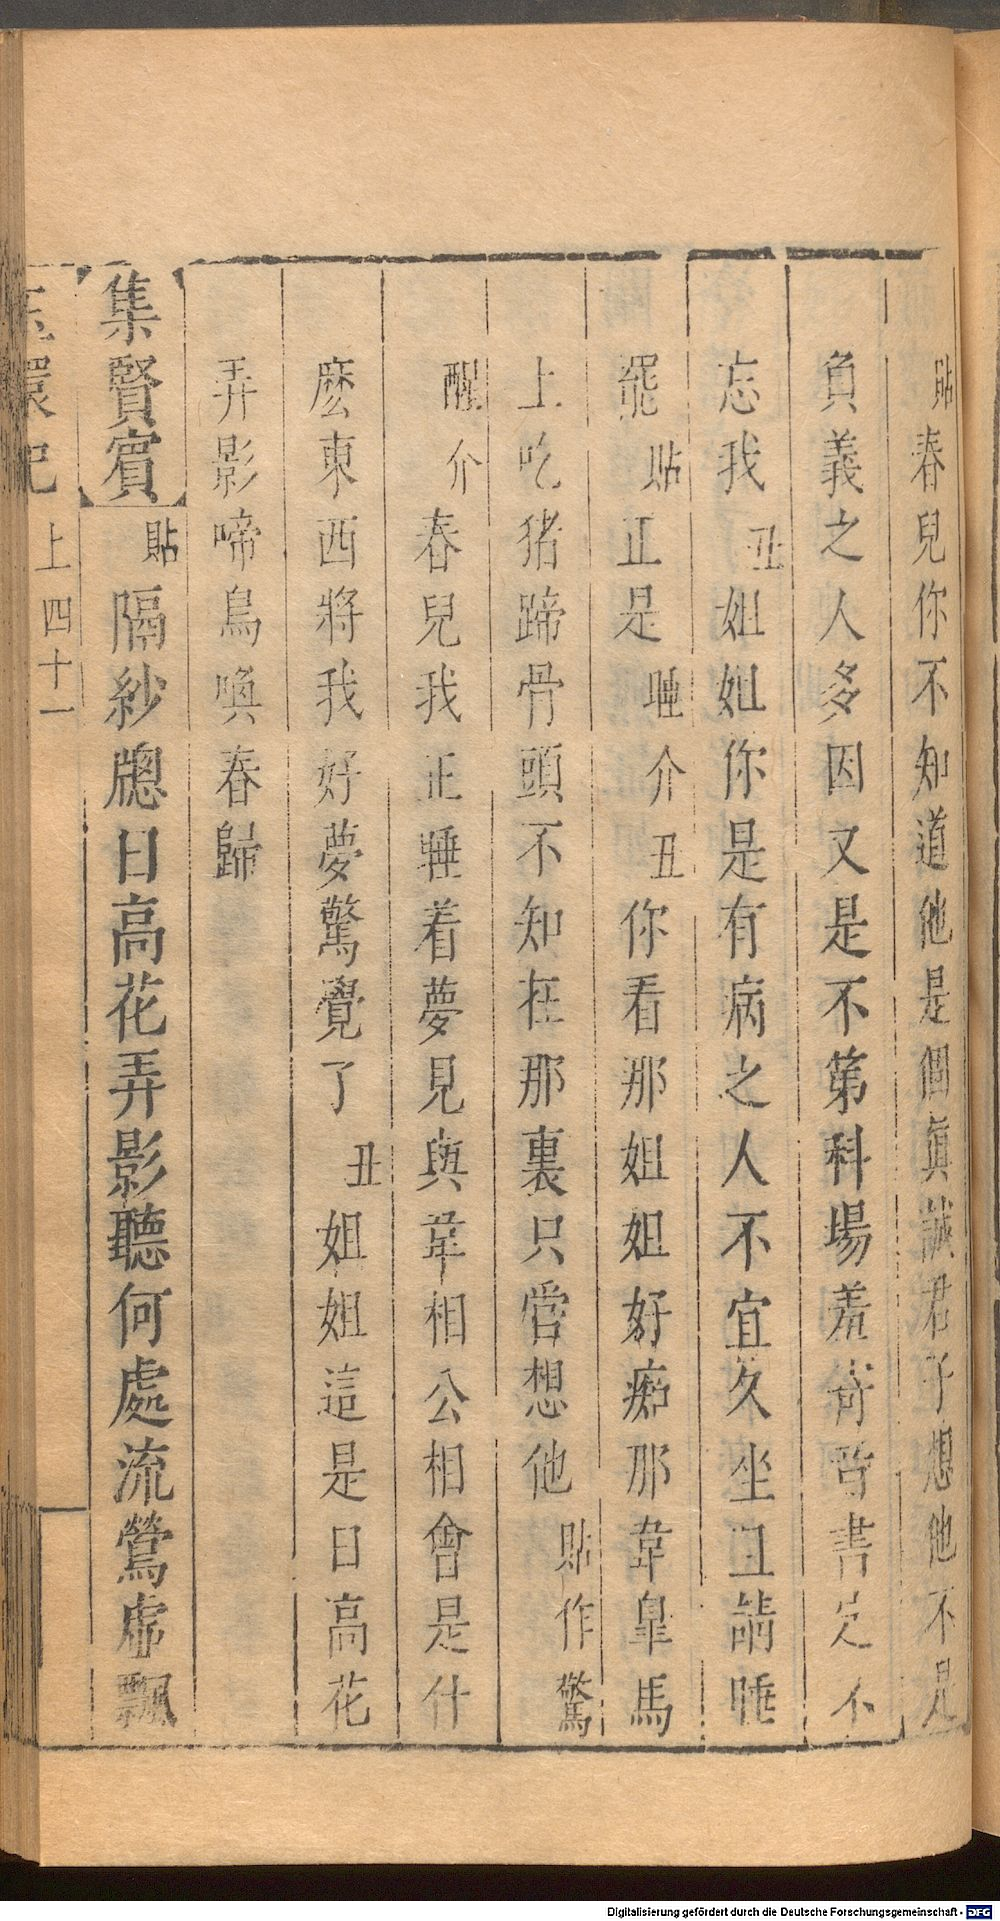 貼春兒你不知道他是個眞誠君子想他不是
負義之人多因又是不第科場羞 書定不
忘我丑姐姐你是有病之人不宜久坐且請睡
罷貼正是睡介丑你看那姐姐好痴那韋皐馬
上吃猪蹄骨頭不知在那裏只管想他貼作驚
醒介春兒我正睡着夢見與韋相公相會是什
麽東西將我好夢驚覺了丑姐姐這是日高花
弄影啼鳥喚春歸
集賢賓貼隔紗牕日高花弄影聽何處流鶯虛飄
玉環記 上 四十一
Digitalisierung gefördert durch die Deutsche Forschungsgemeinschaft - DFG